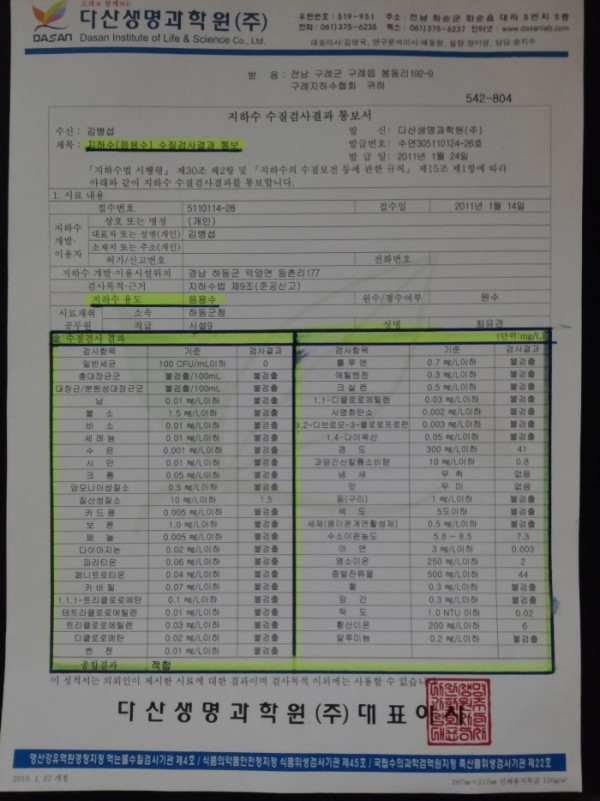 고객과 함께하는
다산생명과학원(주)
DASAN Dasan Institute of Life & Science Co., Ltd.
우편번호 : 519-951 주소 : 전남 화순군 화순읍 대리 5번지 5층
전화 : 061)375-6235 팩스 : 061)375-6237 인터넷 : www.dasanlab.com
받 음 : 전남 구례군 구례읍 봉동리192-9
구례지하수협회 귀하
542-804
지하수 수질검사결과 통보서
수신 : 김병섭 발 신 : 다산생명과학원(주)
제목 : 지하수(음용수) 수질검사결과 통보 발급번호 : 수연305110124-26호
발 급 일 : 2011년 1월 24일
「지하수법 시행령」 제30조 제2항 및 「지하수의 수질보전 등에 관한 규칙」 제15조 제1항에 따라
아래와 같이 지하수 수질검사결과를 통보합니다.
1. 시료 내용
접수번호 5110114-28 접수일 2011년 1월 14일
지하수 개발·이용자
상호 또는 명칭 (개인)
대표자 또는 성명(개인) 김병섭
소재지 또는 주소(개인)
허가/신고번호 전화번호
지하수 개발·이용시설위치 경남 하동군 악양면 등촌리177
검사목적·근거 지하수법 제9조(준공신고)
지하수 용도 음용수 원수/정수여부 원수
시료채취 공무원 소속 하동군청
직급 시설9 성명 최유경
2. 수질검사 결과 (단위:mg/L)
검사항목 기준 검사결과 검사항목 기준 검사결과
일반세균 100 CFU/mL이하 0 톨루엔 0.7 mg/L이하 불검출
총대장균군 불검출/100mL 불검출 에틸벤젠 0.3 mg/L이하 불검출
대장균/분원성대장균군 불검출/100mL 불검출 크실렌 0.5 mg/L이하 불검출
납 0.01 mg/L이하 불검출 1.1-디클로로에틸렌 0.03 mg/L이하 불검출
불소 1.5 mg/L이하 불검출 사염화탄소 0.002 mg/L이하 불검출
비소 0.01 mg/L이하 불검출 1,2-디브로모-3-클로로프로판 0.003 mg/L이하 불검출
세레늄 0.01 mg/L이하 불검출 1.4-다이옥산 0.05 mg/L이하 불검출
수은 0.001 mg/L이하 불검출 경도 300 mg/L이하 41
시안 0.01 mg/L이하 불검출 과망간산칼륨소비량 10 mg/L이하 0.8
크롬 0.05 mg/L이하 불검출 냄새 무취 없음
암모니아성질소 0.5 mg/L이하 불검출 맛 무미 없음
질산성질소 10 mg/L이하 1.5 동(구리) 1 mg/L이하 불검출
카드뮴 0.005 mg/L이하 불검출 색도 5도이하 불검출
보론 1.0 mg/L이하 불검출 세제(음이온계면활성제) 0.5 mg/L이하 불검출
페놀 0.005 mg/L이하 불검출 수소이온농도 5.8 - 8.5 7.3
다이아지논 0.02 mg/L이하 불검출 아연 3 mg/L이하 0.003
파라티온 0.06 mg/L이하 불검출 염소이온 250 mg/L이하 2
페니트로티온 0.04 mg/L이하 불검출 증발잔류물 500 mg/L이하 44
카바릴 0.07 mg/L이하 불검출 철 0.3 mg/L이하 불검출
1.1.1-트리클로로에탄 0.1 mg/L이하 불검출 망간 0.3 mg/L이하 불검출
테트라클로로에틸렌 0.01 mg/L이하 불검출 탁도 1.0 NTU 이하 0.02
트리클로로에틸렌 0.03 mg/L이하 불검출 황산이온 200 mg/L이하 6
디클로로메탄 0.02 mg/L이하 불검출 알루미늄 0.2 mg/L이하 불검출
벤젠 0.01 mg/L이하 불검출
종합결과 적합
이 성적서는 의뢰인이 제시한 시료에 대한 결과이며 검사목적 이외에는 사용할 수 없습니
다산생명과학원(주)대표이사
영산강유역환경청지정 먹는물수질검사기관 제4호 / 식품의약품안전청지정 식품위생검사기관 제45호 / 국립수의과학검역원지정 축산물위생검사기관 제22호
2010. 1. 27 개정